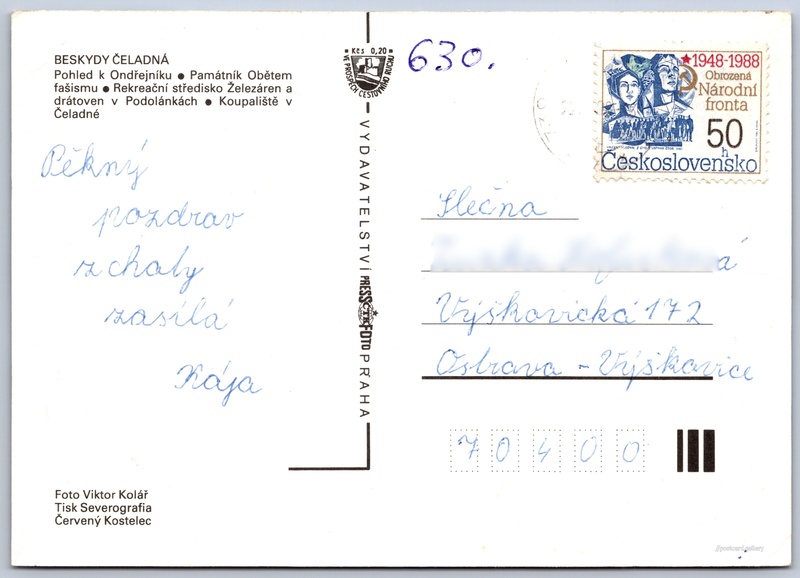 BESKYDY ČELADNÁ
Pohled k Ondřejníku ● Památník Obětem
fašismu ● Rekreační středisko Železáren a
drátoven v Podolánkách ● Koupaliště v
Čeladné
Pěkný
pozdrav
z chaty
zasílá
Kája
Foto Viktor Kolář
Tisk Severografia
Červený Kostelec
Kčs 0,20
VE PROSPĚCH CESTOVNÍHO RUCHU
VYDAVATELSTVÍ PRESSFOTO PRAHA
ČTK
630.
1948-1988
Obrozená
Národní
fronta
50
h
Československo
Slečna
á
Výškovická 172
Ostrava - Výškovice
70400